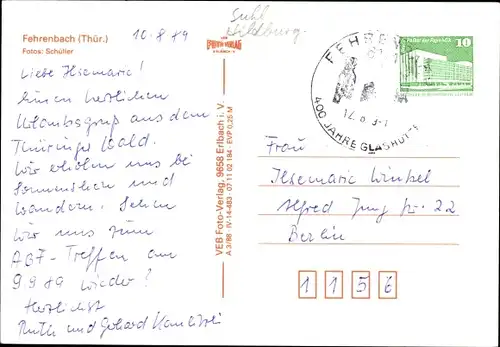 Fehrenbach (Thür.)
Fotos: Schüller
10.8.89
Liebe Ilsemarie!
Einen herzlichen
Urlaubsgruß aus dem
Thüringer Wald.
Wir erholen uns bei
Sonnenschein und
Wandern. Sehen
wir uns zum
AGF-Treffen am
9 9 89 wieder?
Herzlichst
Ruth und Gerhard
Suhl
Hildburg.
FOTO-VERLAG
VEB Foto-Verlag, 9658 Erlbach i. V.
A 3/88 IV-14-483 07 11 02 184 EVP 0,25 M
FEHRENB
400 JAHRE GLASHÜTT
10
Palast der Republik
Frau
Ilsemarie Winkel
Alfred Jung Str. 22
Berlin
1 1 5 6